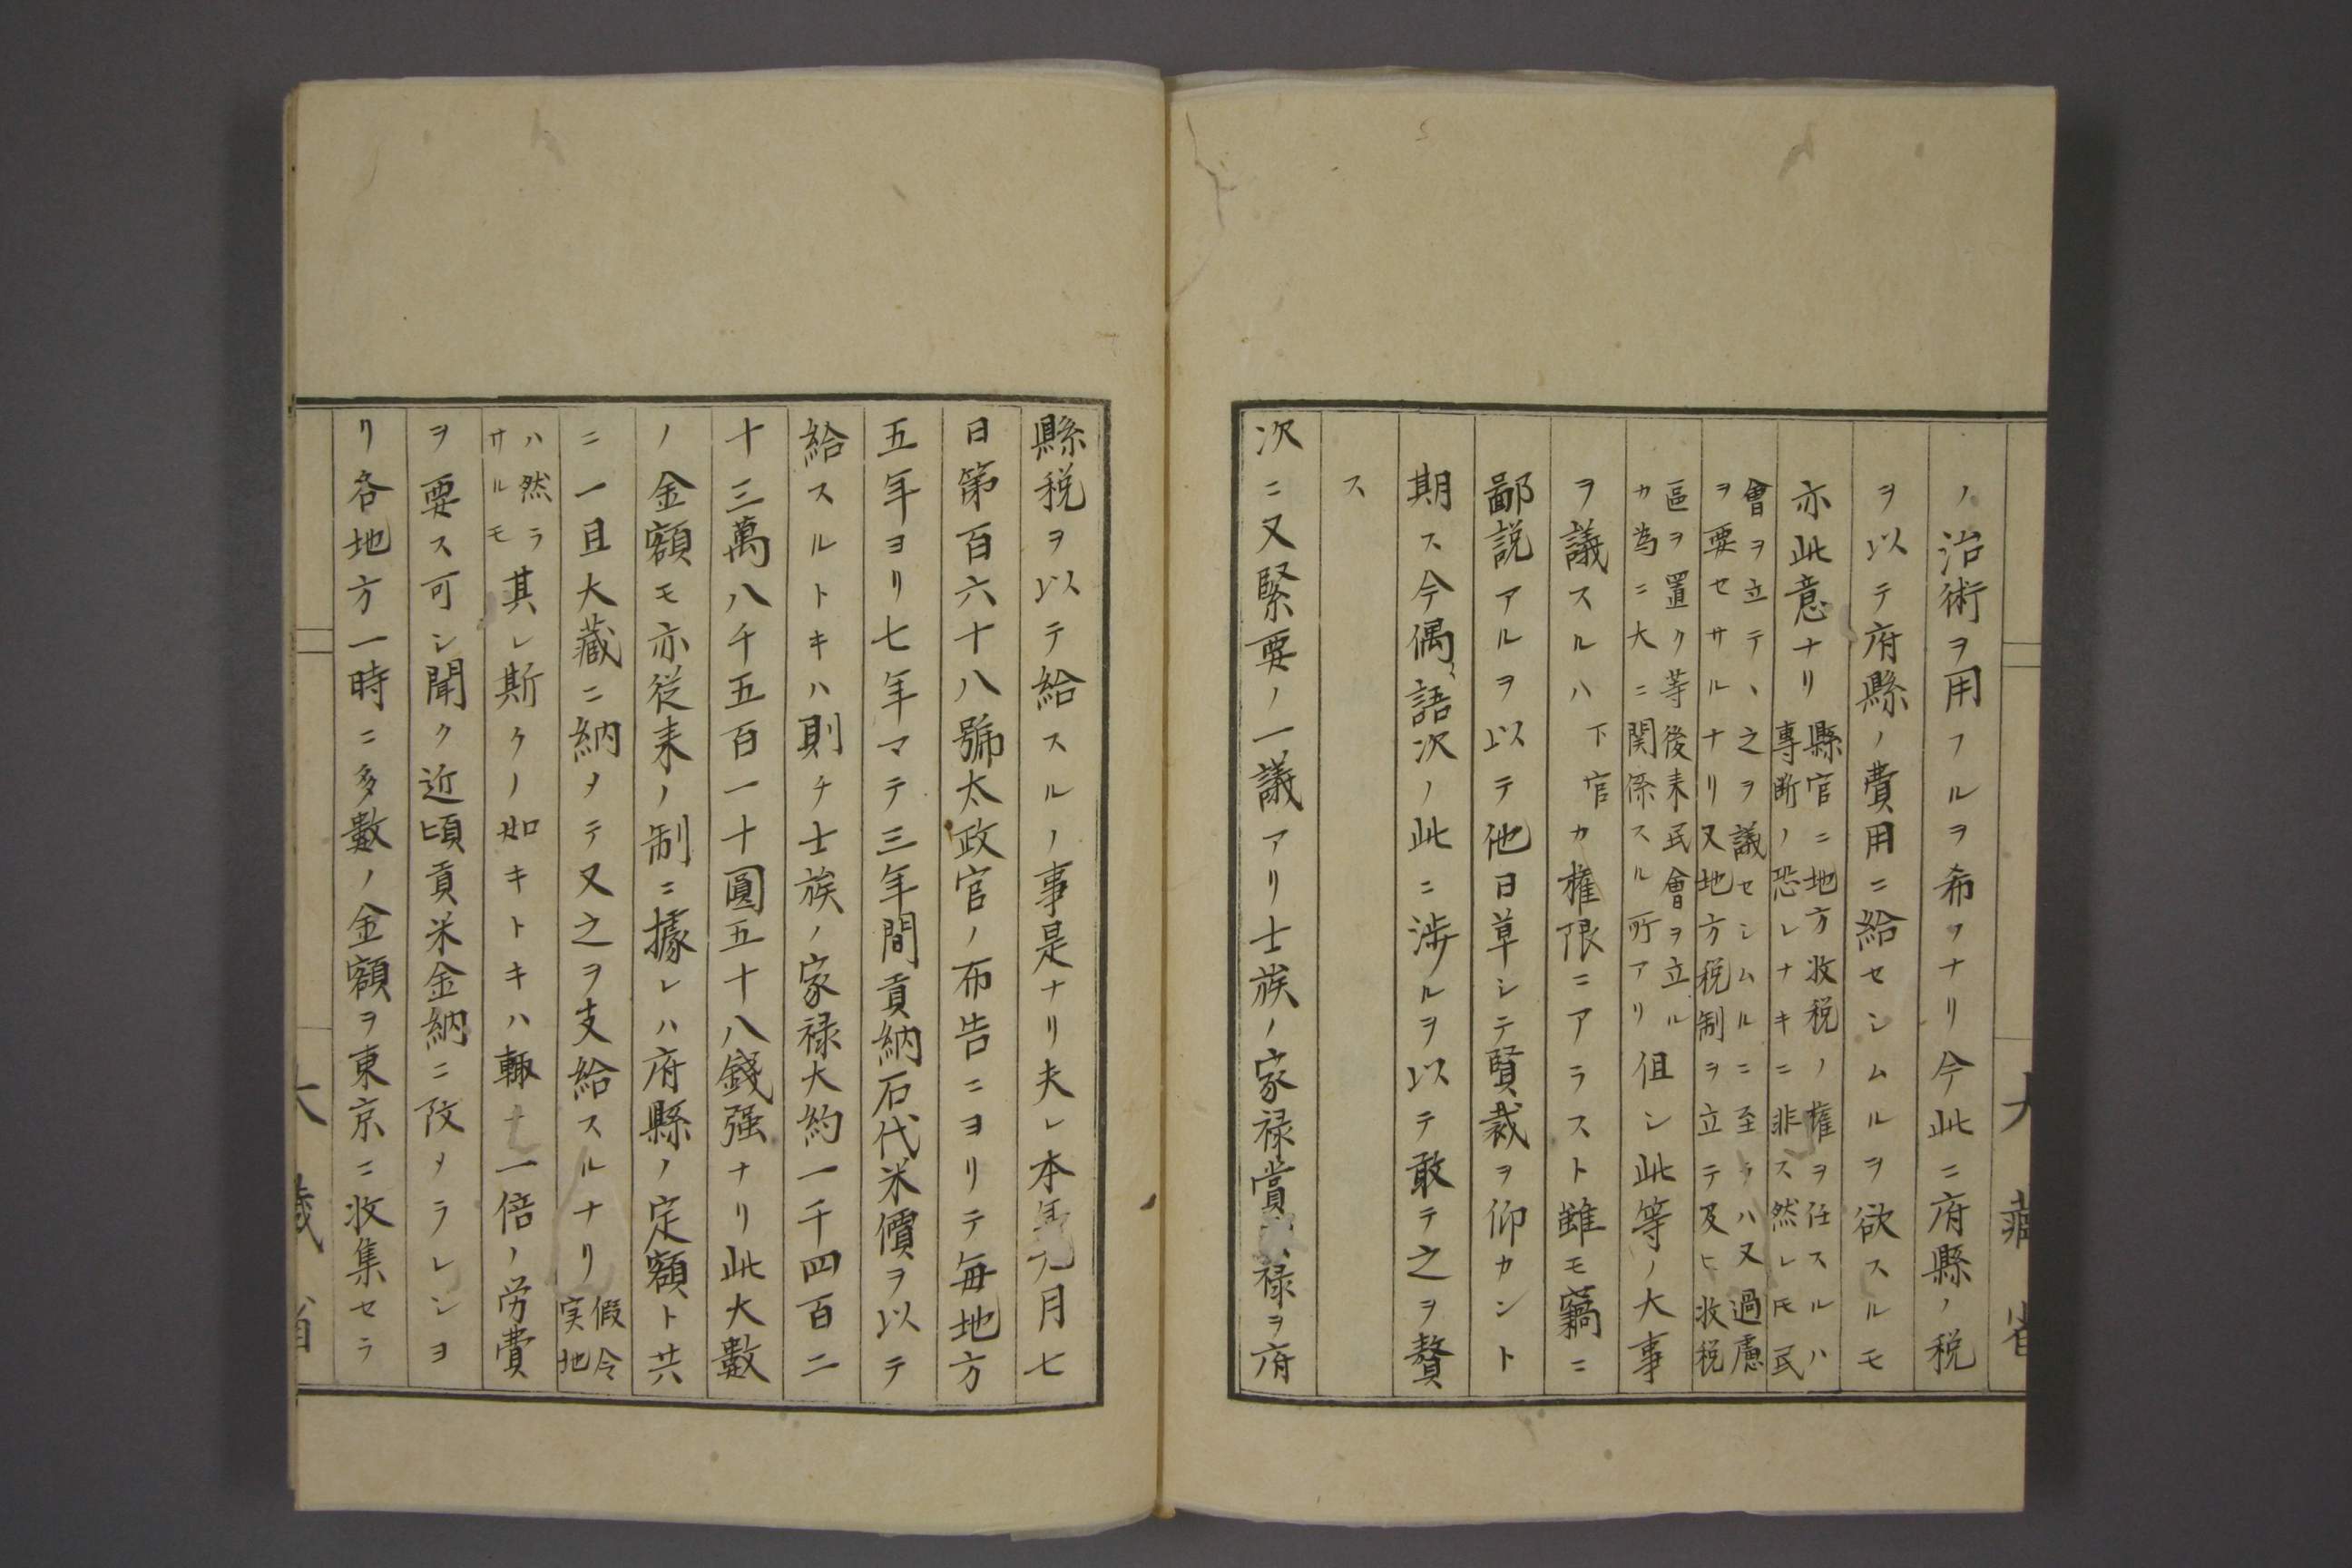 ノ治術ヲ用フルヲ希フナリ今此ニ府縣ノ税
ヲ以テ府縣ノ費用ニ給セシムルヲ欲スルモ
亦此意ナリ
縣官ニ地方收税ノ權ヲ任スルハ
専断ノ恐レナキニ非ス然レ𪜈民
會ヲ立テヽ之ヲ議セシムルニ至ラハ又過慮
ヲ要セサルナリ又地方税制ヲ立テ及ヒ收税
區ヲ置ク等後来民會ヲ立ル
カ為ニ大ニ関係スル所アリ
但シ此等ノ大事
ヲ議スルハ下官カ権限ニアラスト雖モ竊ニ
鄙説アルヲ以テ他日草シテ賢裁ヲ仰カント
期ス今偶〻語次ノ此ニ渉ルヲ以テ敢テ之ヲ贅
ス
次ニ又緊要ノ一議アリ士族ノ家禄賞禄ヲ府
大藏省
縣税ヲ以テ給スルノ事是ナリ夫レ本年九月七
日第百六十八號太政官ノ布告ニヨリテ毎地方
五年ヨリ七年マテ三年間貢納石代米價ヲ以テ
給スルトキハ則チ士族ノ家禄大約一千四百二
十三萬八千五百一十圓五十八錢强ナリ此大數
ノ金額モ亦従来ノ制ニ據レハ府縣ノ定額ト共
ニ一且大藏ニ納メテ又之ヲ支給スルナリ
假令
実地
ハ然ラ
サルモ
其レ斯クノ如キトキハ輙チ一倍ノ労費
ヲ要ス可シ聞ク近頃貢米金納ニ改メラレシヨ
リ各地方一時ニ多數ノ金額ヲ東京ニ收集セラ
大藏省